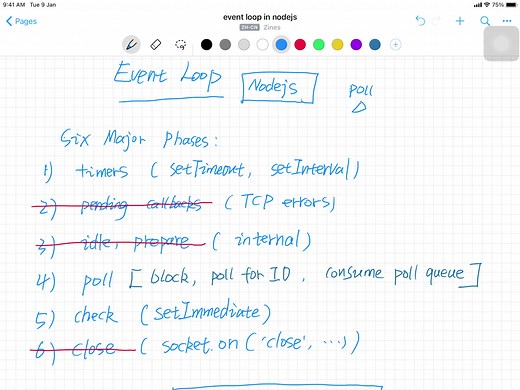 9:41 AM Tue 9 Jan
75%
event loop in nodejs
Pages
ZH-CN Zines
Event Loop Nodejs
poll
Six Major Phases:
1) timers (setTimeout, setInterval)
2) pending callbacks (TCP errors)
3) idle, prepare (internal)
4) poll [block, poll for IO, consume poll queue]
5) check (setImmediate)
6) close (socket.on('close', ...))